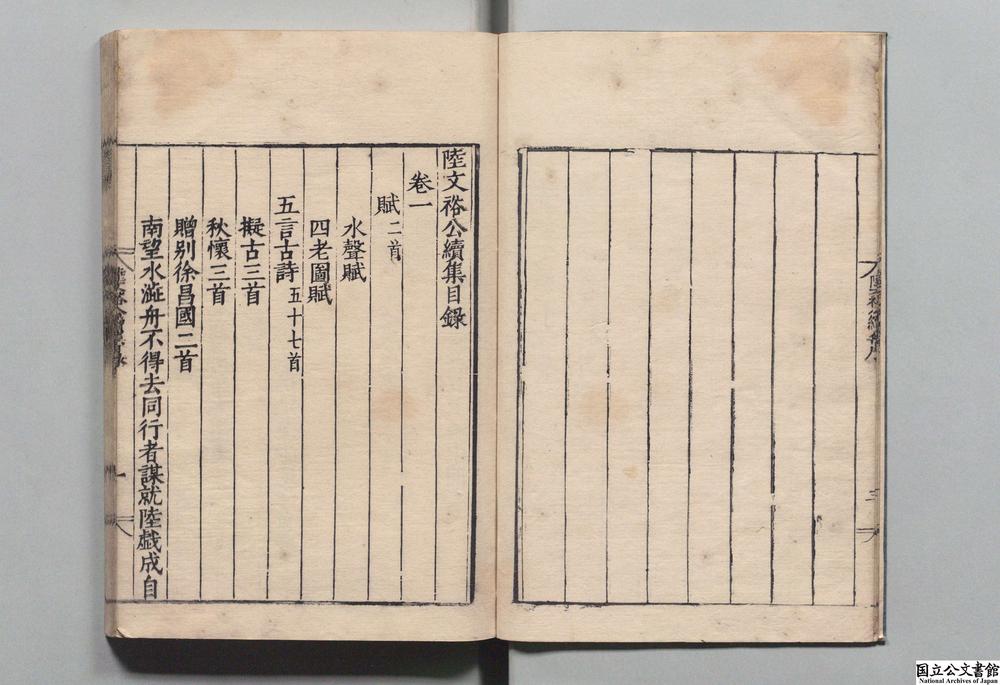 陸文裕公續集目錄
卷一
賦二首
水聲賦
四老圖賦
五言古詩五十七首
擬古三首
秋懷三首
贈別徐昌國二首
南望水澁舟不得去同行者謀就陸戯成自
国立公文書館
National Archives of Japan